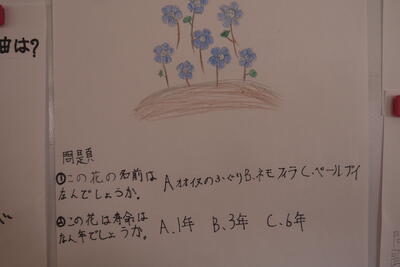 曲は?
問題
①この花の名前は A オオイヌのふぐり B.ネモフィラ C.ペールブイ
なんでしょうか。
②この花は寿命は A.1年 B.3年 C.6年
なん年でしょうか。